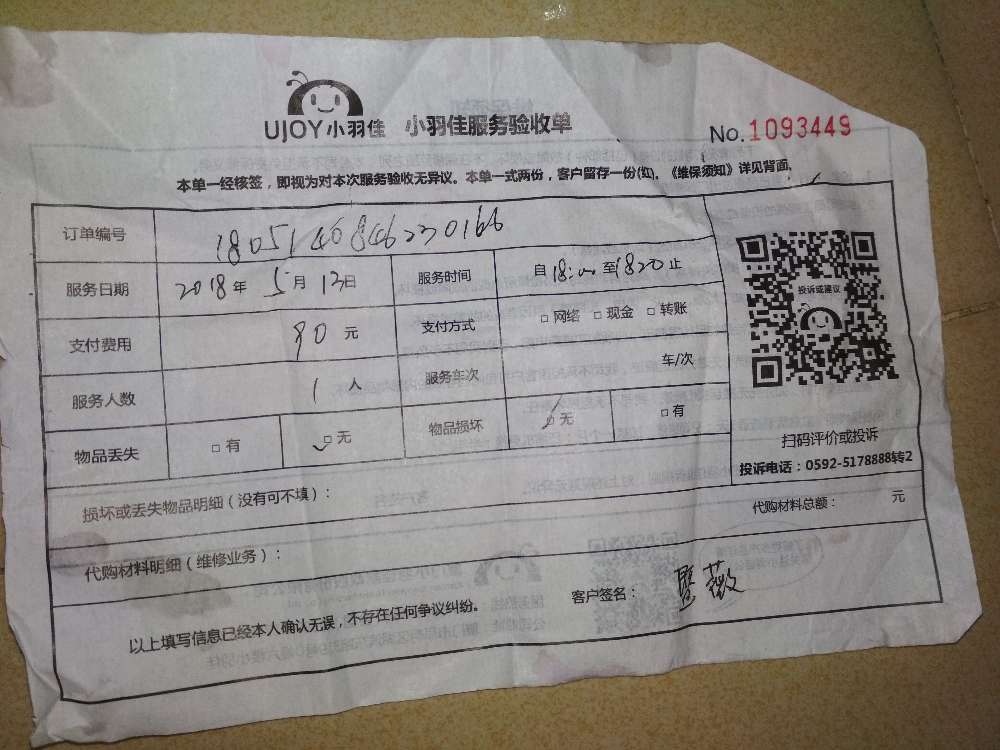 UJOY小羽佳 小羽佳服务验收单
No.1093449
本单一经核签，即视为对本次服务验收无异议。本单一式两份，客户留存一份(红)。《维保须知》详见背面。
订单编号 1805140846230166
服务日期 2018年5月12日 服务时间 自18:00至1820止
支付费用 90元 支付方式 □网络 □现金 □转账
服务人数 1人 服务车次 车/次
物品丢失 □有 □无 物品损坏 □无 □有
投诉或建议
扫码评价或投诉
投诉电话：0592-5178888转2
损坏或丢失物品明细（没有可不填）：
代购材料明细（维修业务）： 代购材料总额： 元
以上填写信息已经本人确认无误，不存在任何争议纠纷。 客户签名：